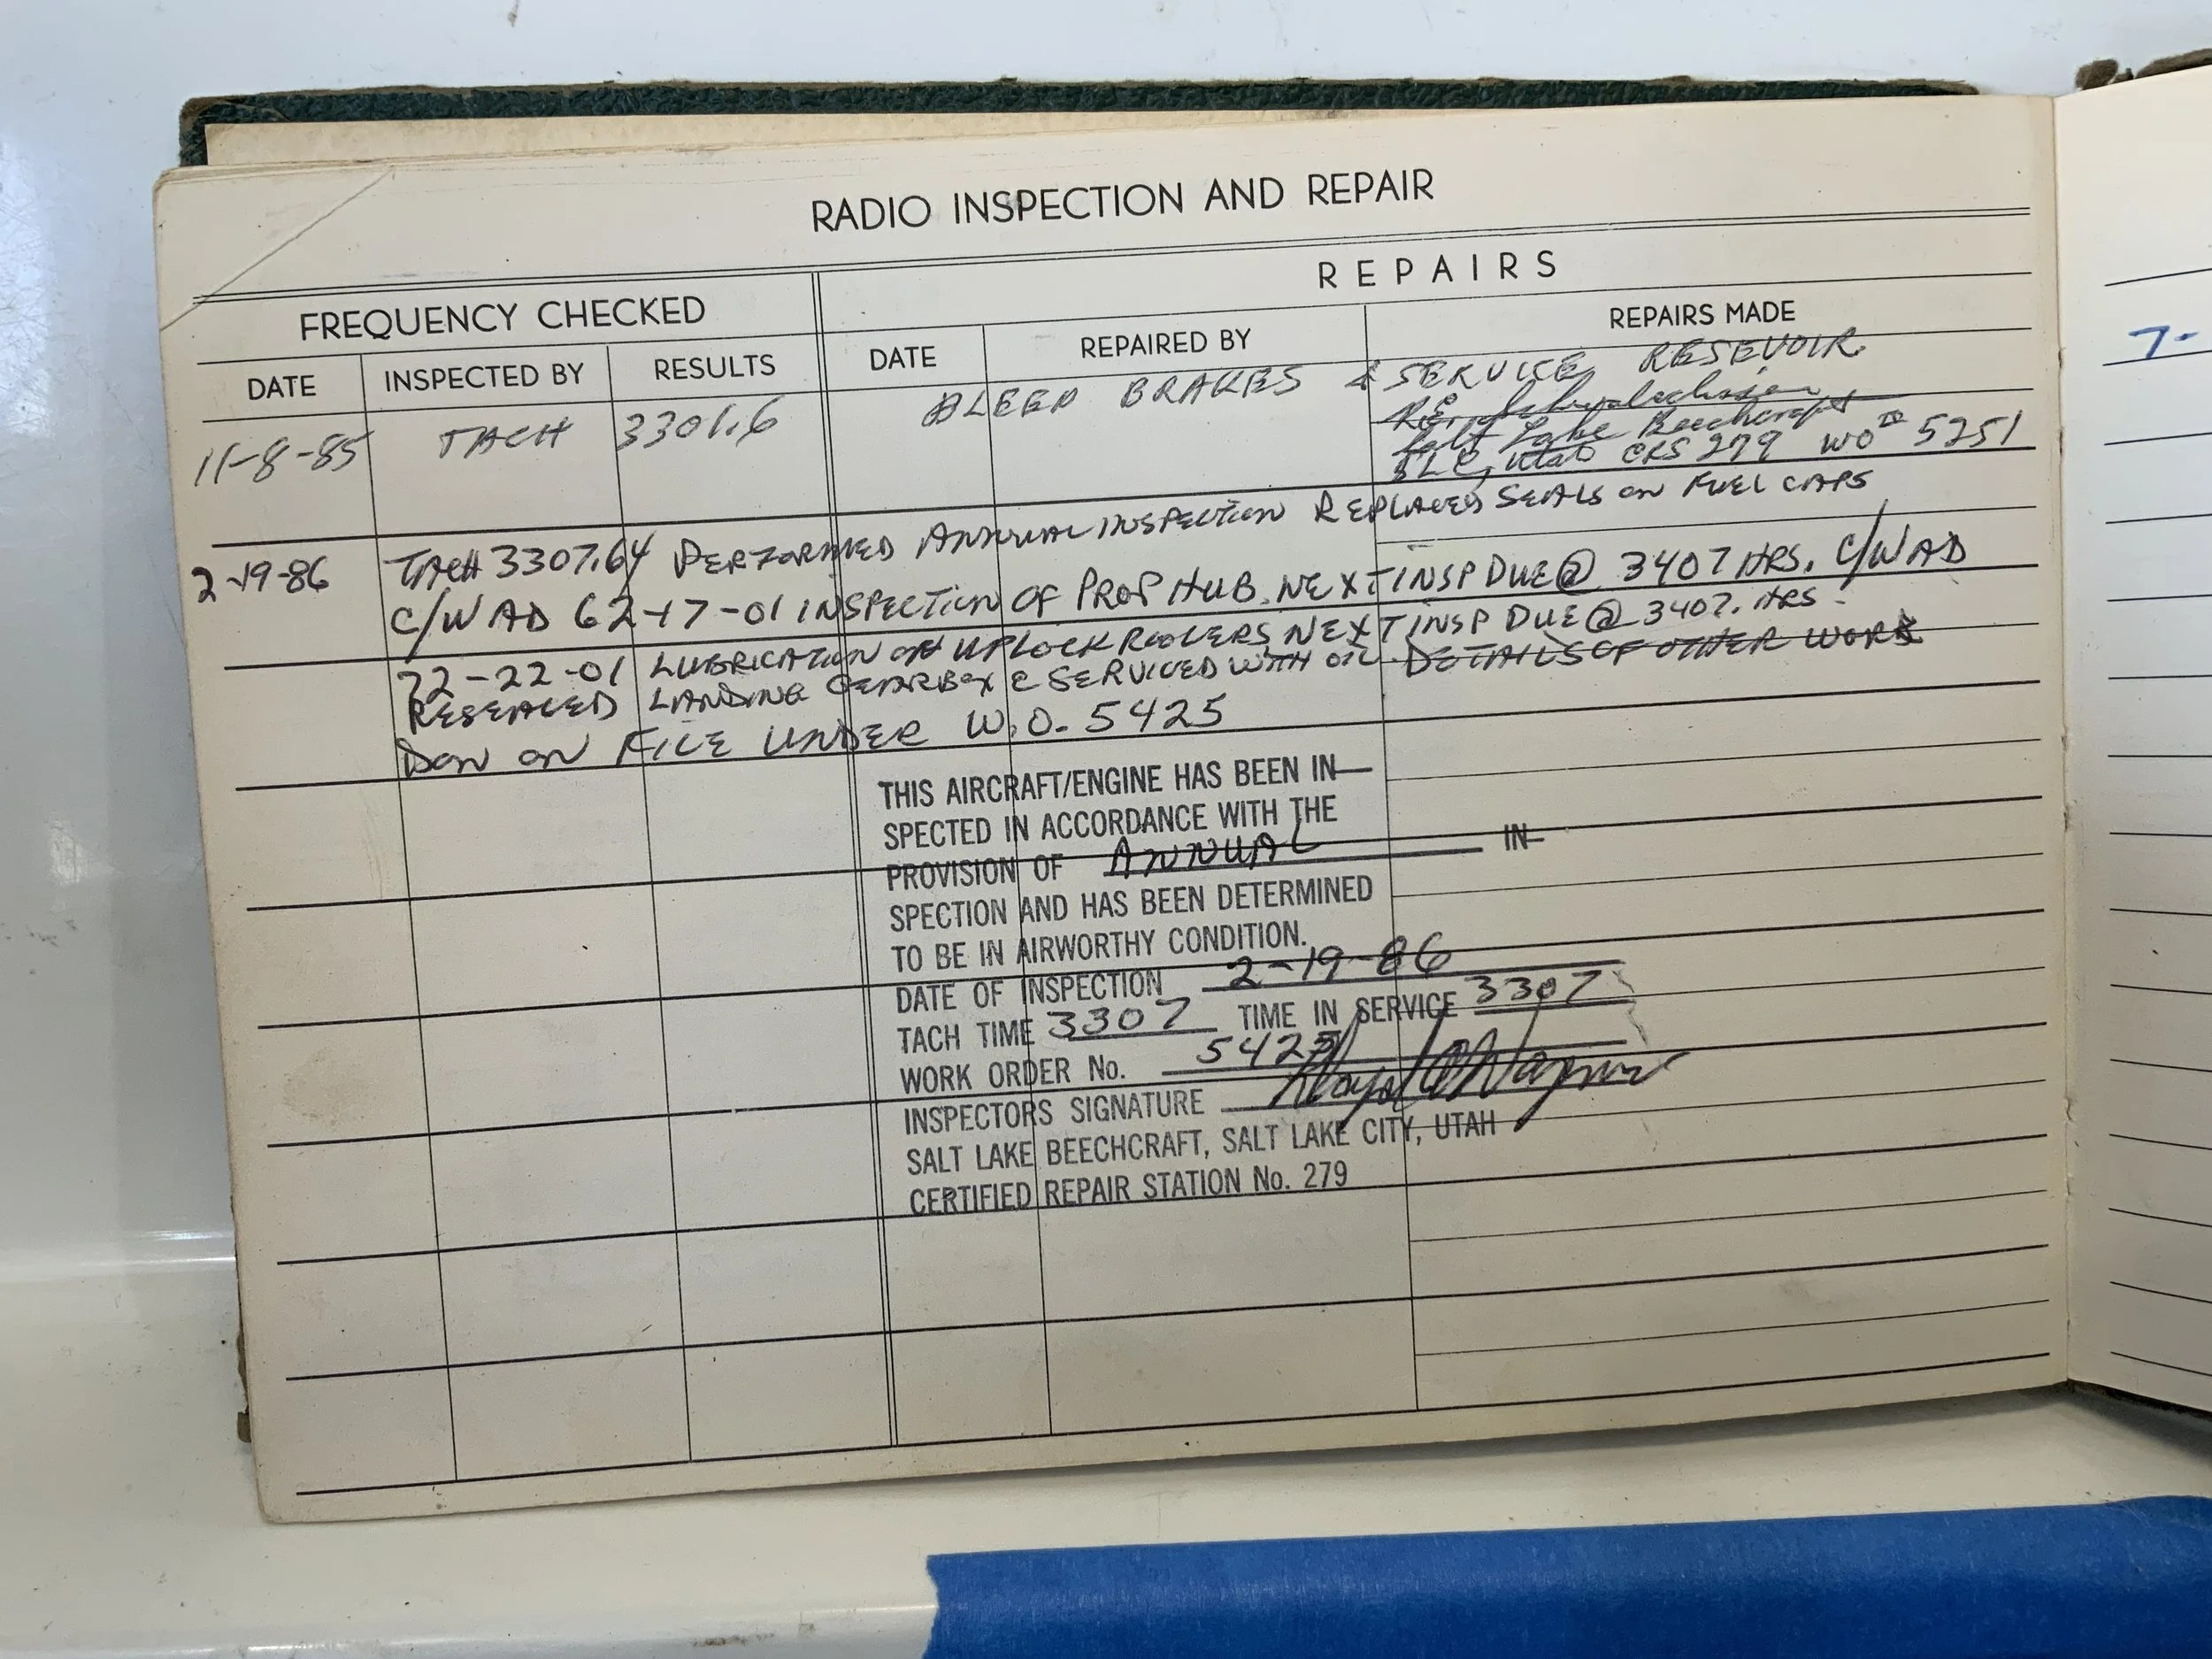 RADIO INSPECTION AND REPAIR
FREQUENCY CHECKED
REPAIRS
DATE INSPECTED BY RESULTS DATE REPAIRED BY REPAIRS MADE
11-8-85 TACH 3301.6 BLEED BRAKES & SERVICE RESEVOIR.
Salt Lake Beechcraft
SLC, Utah CRS 279 WO# 5251
2-19-86 TACH 3307.64 PERFORMED ANNUAL INSPECTION REPLACED SEALS ON FUEL CAPS
C/W AD 62-17-01 INSPECTION OF PROP HUB. NEXT INSP DUE @ 3407 HRS. C/W AD
72-22-01 LUBRICATION OF UPLOCK ROLLERS, NEXT INSP DUE @ 3407. HRS.
RESEALED LANDING GEARBOX & SERVICED WITH OIL. DETAILS OF OTHER WORK
DON ON FILE UNDER W.O. 5425
THIS AIRCRAFT/ENGINE HAS BEEN IN-
SPECTED IN ACCORDANCE WITH THE
PROVISION OF ANNUAL IN-
SPECTION AND HAS BEEN DETERMINED
TO BE IN AIRWORTHY CONDITION.
DATE OF INSPECTION 2-19-86
TACH TIME 3307 TIME IN SERVICE 3307
WORK ORDER No. 5425
INSPECTORS SIGNATURE
SALT LAKE BEECHCRAFT, SALT LAKE CITY, UTAH
CERTIFIED REPAIR STATION No. 279
7-